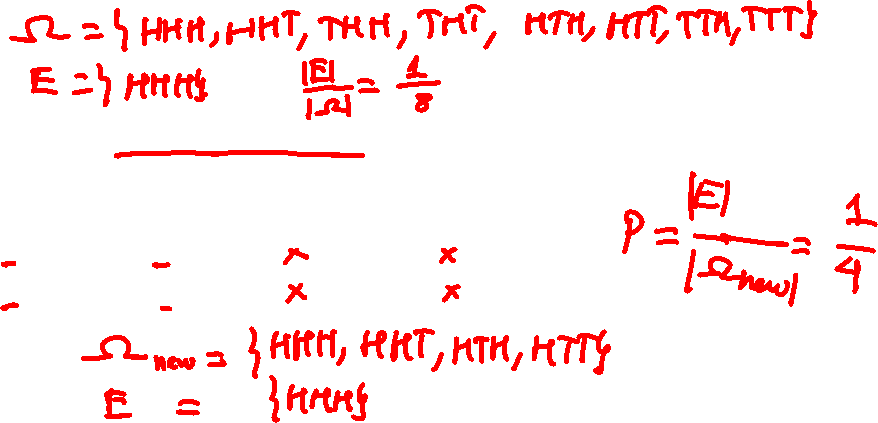 Ω = { HHH, HHT, THH, THT, HTH, HTT, TTH, TTT}
E = { HHH} |E| / |Ω| = 1/8
P = |E| / |Ω new| = 1/4
- - x x
- - x x
Ω new = { HHH, HHT, HTH, HTT}
E = {HHH}